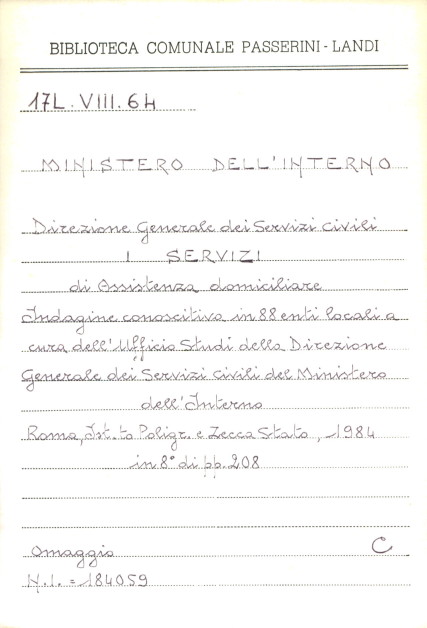 BIBLIOTECA COMUNALE PASSERINI - LANDI
17L. VIII. 64
MINISTERO DELL'INTERNO
Direzione Generale dei Servizi Civili
I SERVIZI
di Assistenza domiciliare
Indagine conoscitiva in 88 enti locali a
cura dell'Ufficio Studi della Direzione
Generale dei Servizi Civili del Ministero
dell'Interno
Roma, Ist. to Poligr. e Zecca Stato, 1984
in 8° di pp. 208
Omaggio C
N.I. = 184059